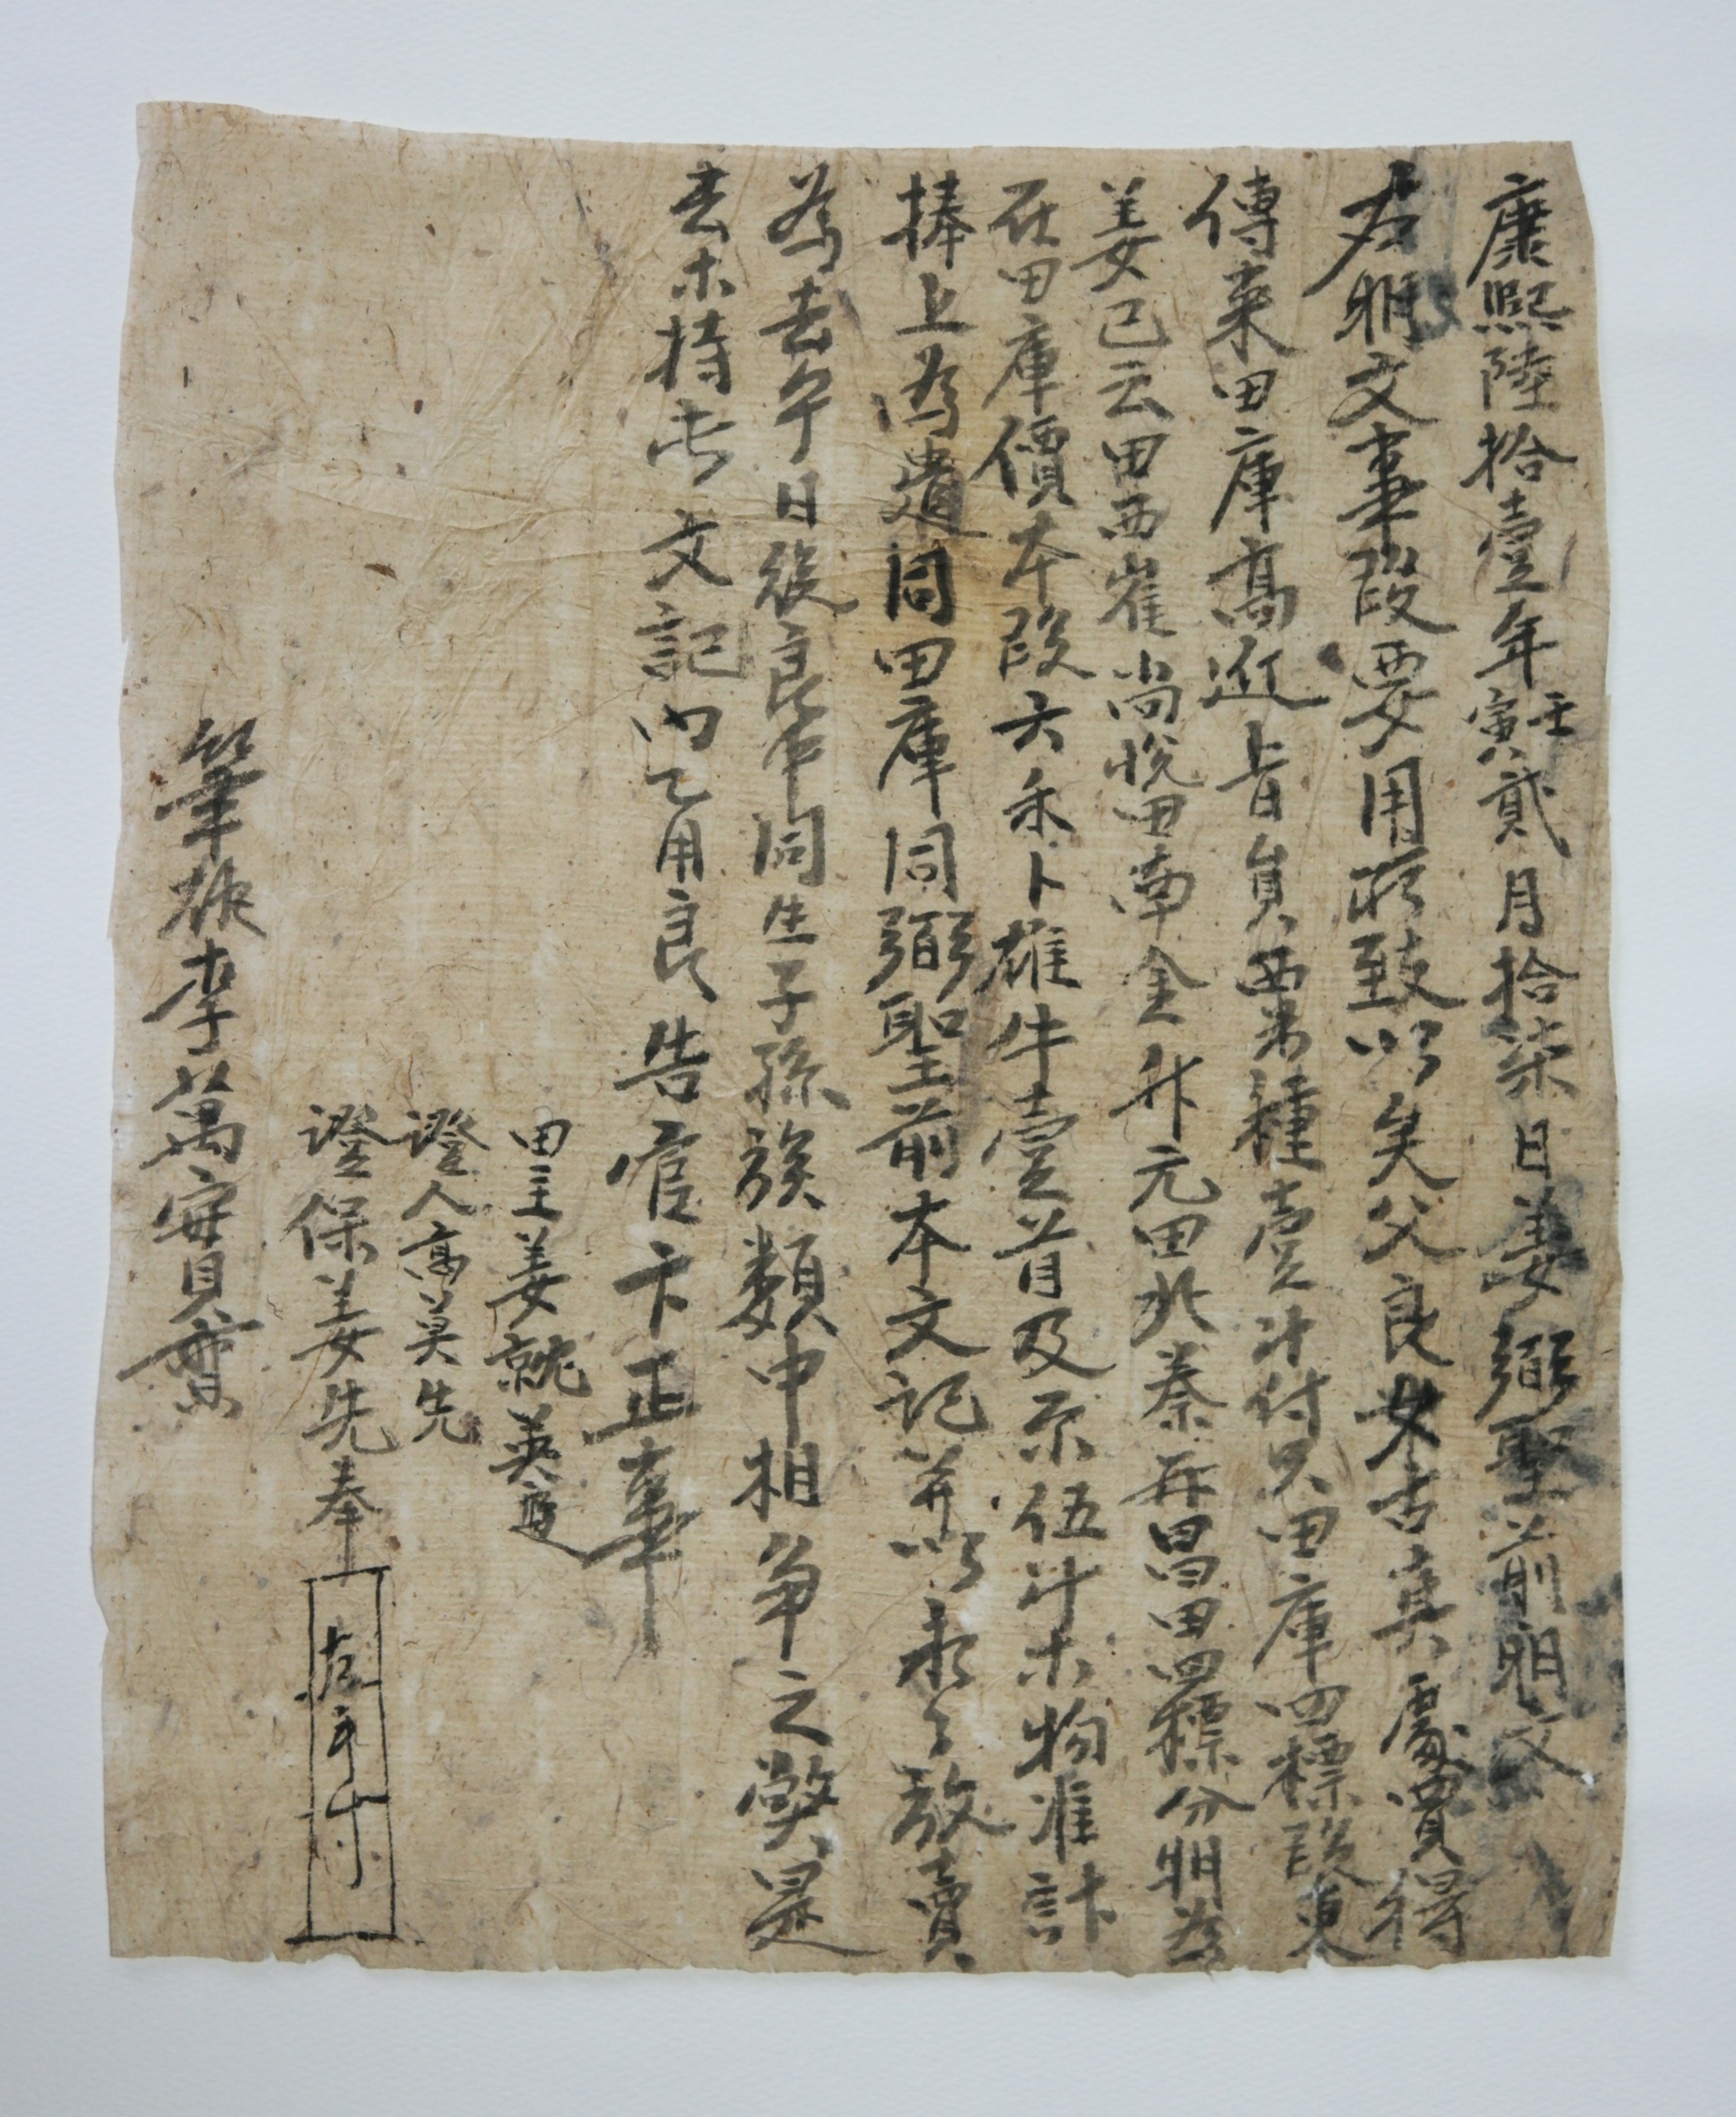 康熙陸拾壹年壬寅貳月拾柒日姜弼聖前明文
右明文事段要用所致以矣父良女古真處買得
傳來田庫高近上旨員西米種壹斗付只田庫四標段東
姜已云田西崔尚悅田南金升元田北秦再昌田四標分明為
在田庫價本段六禾卜雄牛壹首及租伍斗木物准計
捧上為遣同田庫同弼聖前本文記并以永永放賣
為去乎日後良中同生子孫族類中相爭之弊是
去木持此文記內乙用良告官卞正事
田主姜就英
證人高莫先
證保姜先奉 左手寸
筆執李萬實